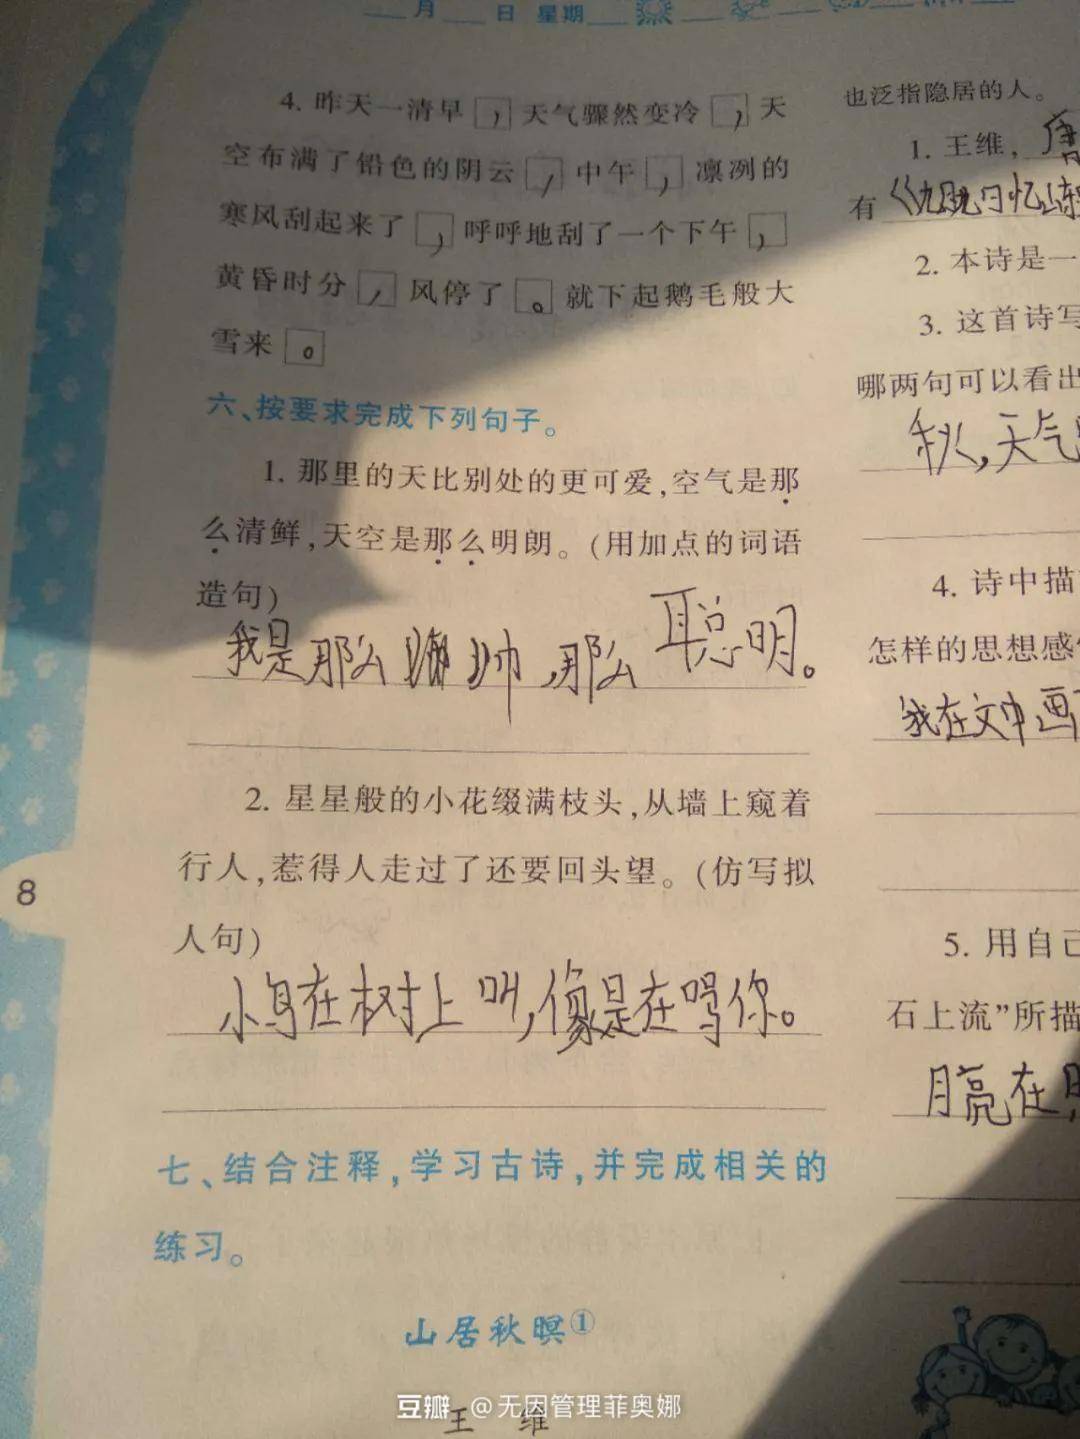 月 日 星期
4. 昨天一清早，天气骤然变冷，天
空布满了铅色的阴云，中午，凛冽的
寒风刮起来了，呼呼地刮了一个下午，
黄昏时分，风停了。就下起鹅毛般大
雪来。
六、按要求完成下列句子。
1. 那里的天比别处的更可爱,空气是那
么清鲜,天空是那么明朗。(用加点的词语
造句)
我是那么帅,那么聪明。
2. 星星般的小花缀满枝头,从墙上窥着
行人,惹得人走过了还要回头望。(仿写拟
人句)
小鸟在树上叫,像是在骂你。
七、结合注释,学习古诗,并完成相关的
练习。
山居秋暝①
王 维
8
也泛指隐居的人。
1. 王维，唐
有《九月九日忆山东
2. 本诗是一
3. 这首诗写
哪两句可以看出
秋,天气
4. 诗中描
怎样的思想感
我在文中画
5. 用自己
石上流”所描
月亮在
豆瓣 @无因管理菲奥娜